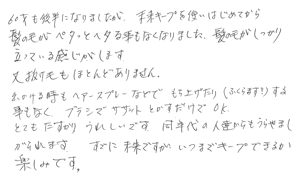 60才も後半になりましたが、手末キープを使いはじめてから
髪の毛が ペタッとヘタる事もなくなりました。髪の毛がしっかり
立っている感じがします
又 抜け毛もほとんどありません。
出かける時も ヘアースプレーなどで もち上げたり(ふくらます)する
事もなく ブラシでササットとかすだけで OK.
とても たすかり うれしいです 同年代の人達からもうらやまし
がられます すでに末ですが いつまでキープできるか
楽しみです。